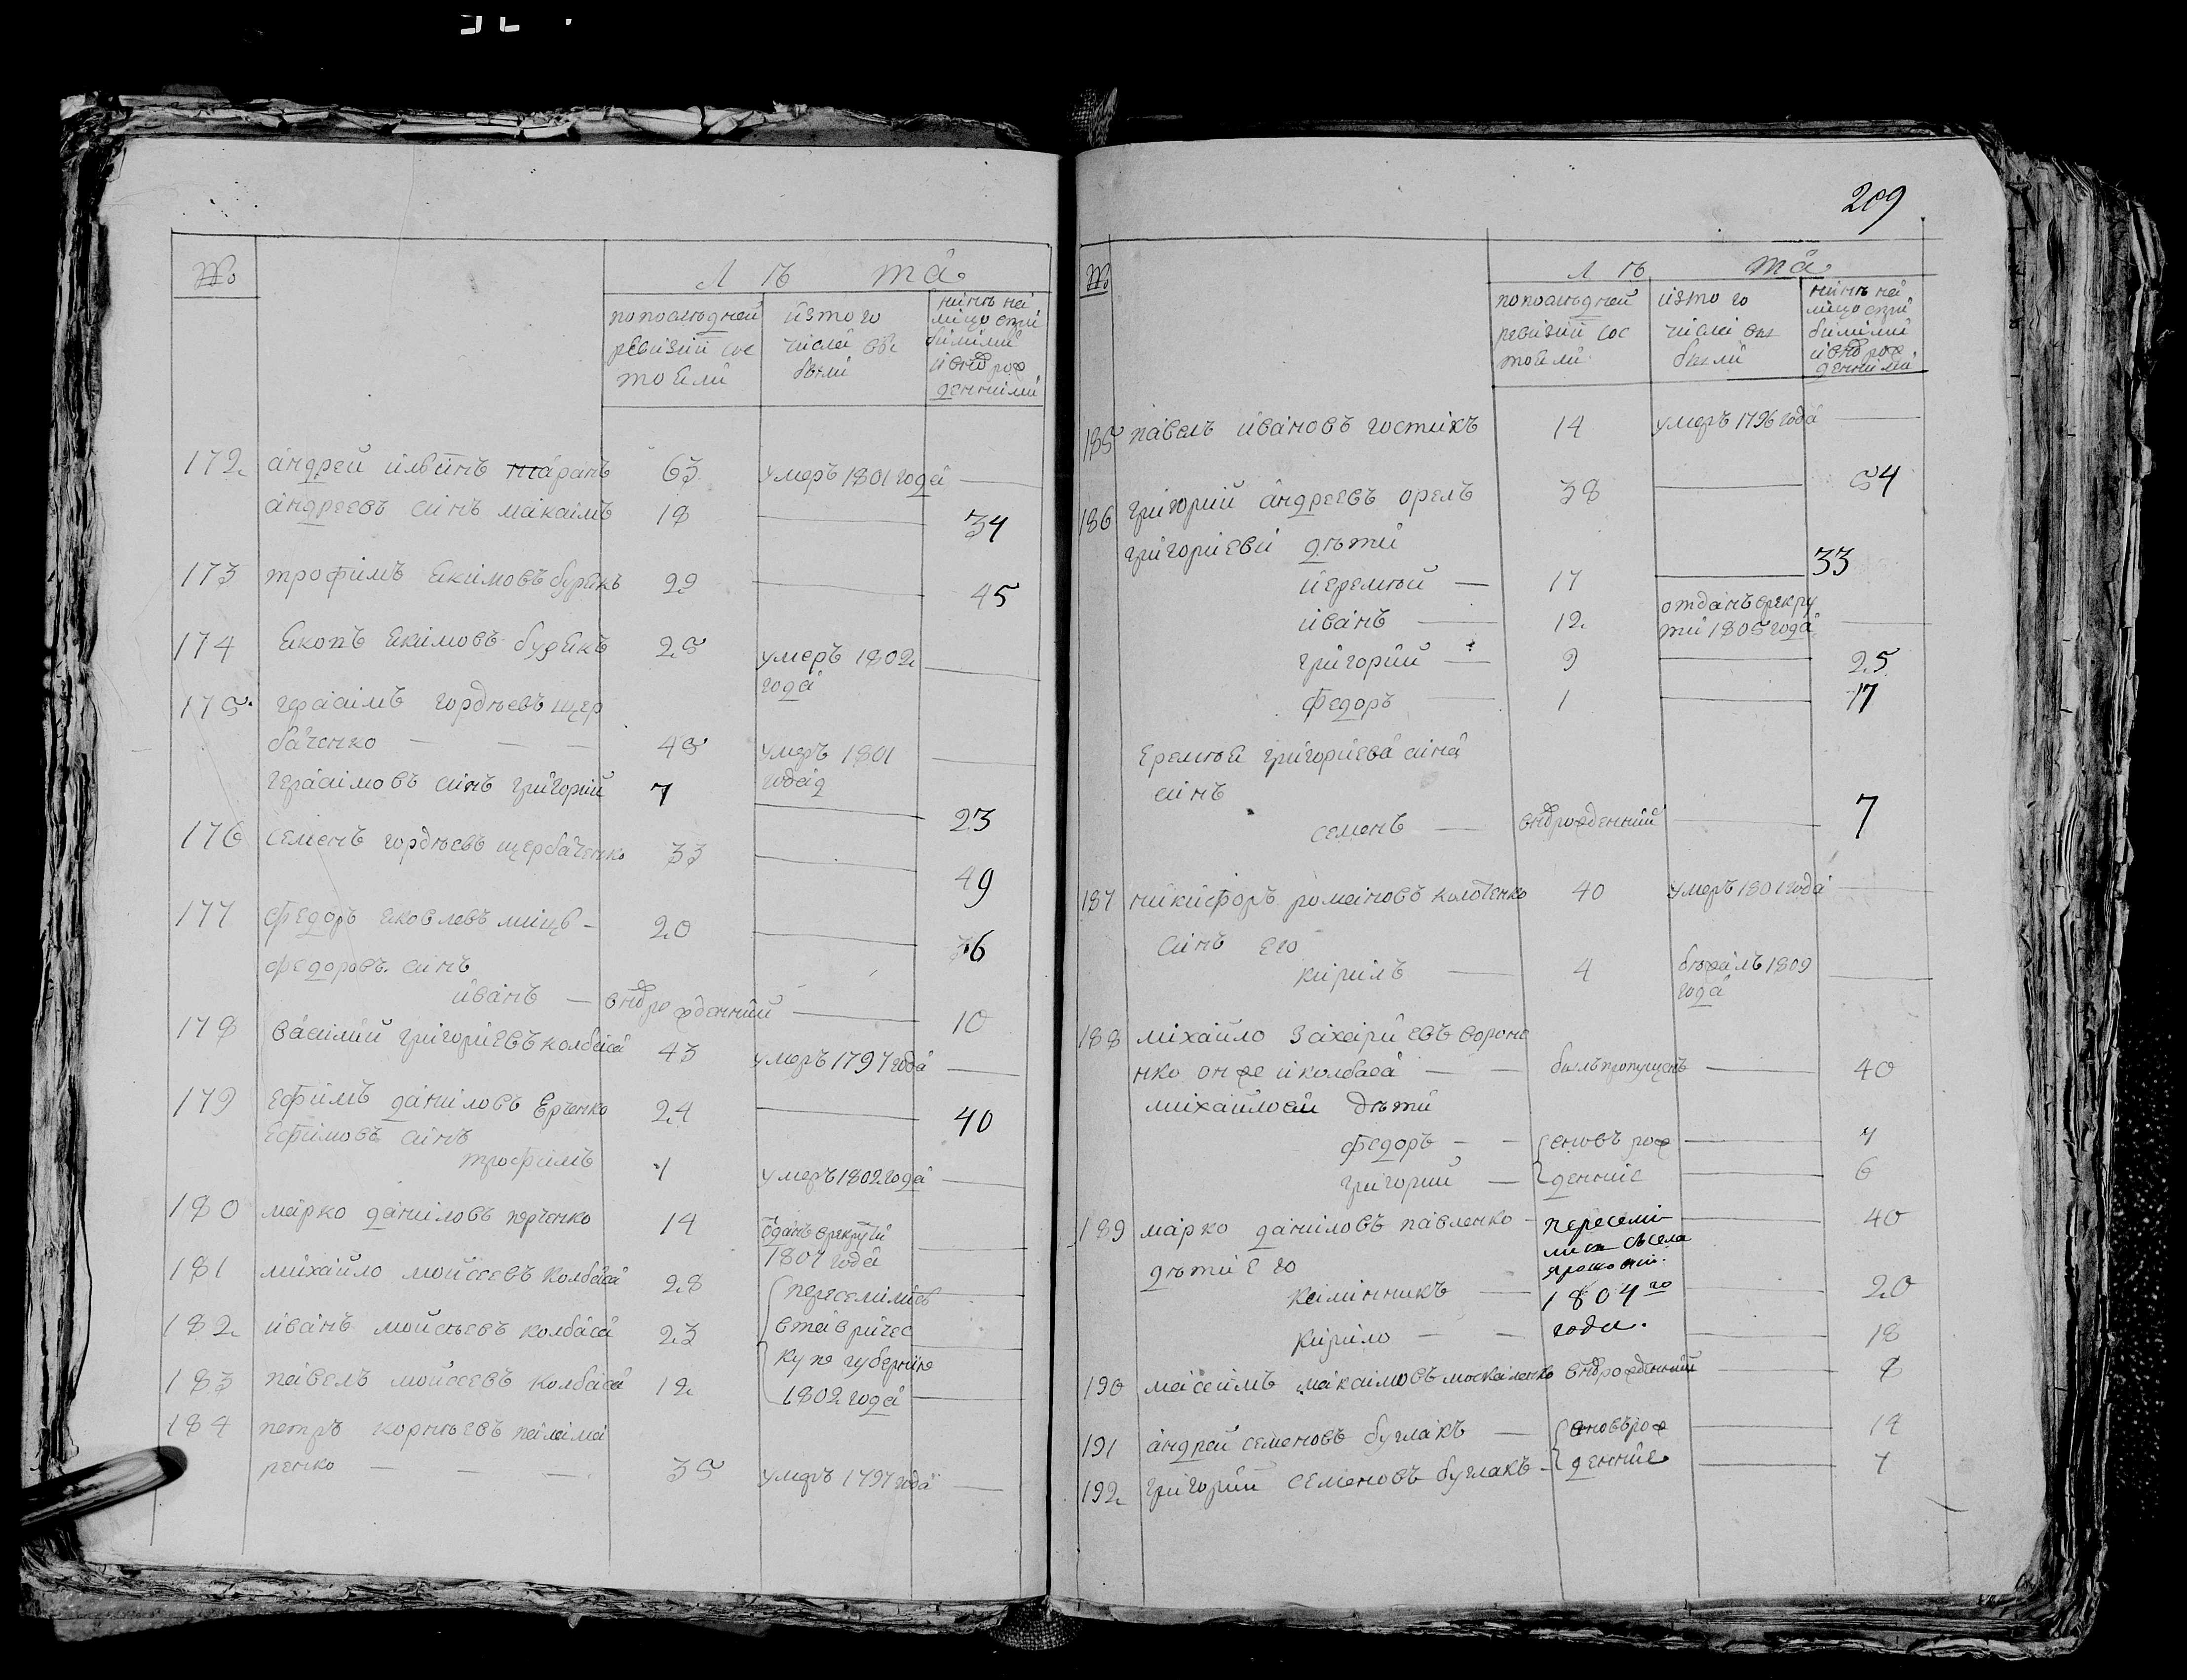 209
№ Лѣта
по последней ревизии состояли
изъ того числа выбыли
нинѣ на лицо с прибилими и внов рожденними
172 андрей ильинъ таранъ 63 умеръ 1801 года —
андреевъ синъ максимъ 18 — 34
173 трофимъ якимовъ бурякъ 29 — 45
174 якопъ якимовъ бурякъ 25 умеръ 1802 —
года
175 герасимъ гордѣевъ щер
баченко — — — 45 умеръ 1801 —
года
герасимовъ синъ григорий 7 — 23
176 семенъ гордѣевъ щербаченко 33 — 49
177 федоръ яковлевъ 20 — 36
федоровъ синъ
иванъ — внов рожденний — 10
178 василий григориевъ колбаса 43 умеръ 1797 года —
179 ефимъ даниловъ 24 — 40
ефимовъ синъ
трофимъ 1 умеръ 1802 года —
180 марко даниловъ 14 одань в рекрути —
1807 года
181 михайло мойсеевъ колбаса 28 переселились —
182 иванъ мойсѣевъ колбаса 23 в тавричес —
кую губернию
183 павелъ мойсеевъ колбаса 12 1802 года —
184 петръ корнѣевъ палама
ренко — — — 35 умеръ 1797 года —
№ Лѣта
по последней ревизии состояли
изъ того числа выбыли
нинѣ на лицо с прибилими и внов рожденними
185 павелъ ивановъ гостикъ 14 умеръ 1796 года —
186 григорий андреевъ орелъ 38 — 54
григориеви дѣти
иеремѣй — 17 — 33
иванъ — 12 отданъ в рекру —
ти 1805 года
григорий — 9 — 25
федоръ — 1 — 17
еремѣя григориева сина
синъ
семенъ — внов рожденний — 7
187 никифоръ романовъ 40 умеръ 1801 года —
синъ его
кирилъ — 4 бѣжалъ 1809 —
года
188 михайло захариевъ вороне
нко онже и колбаса — — былъ пропущенъ — 40
михайлови дѣти
федоръ — — вновъ рож — 7
григорий — денние — 6
189 марко даниловъ павленко - пересели- — 40
лись съ села
дѣти его
калинникъ — 1804го — 20
кирило — — года. — 18
190 максимъ максимовъ москаленко внов рожденний — 8
191 андрей семеновъ буглакъ — вновъ рож — 14
192 григорий семеновъ буглакъ - денние — 7